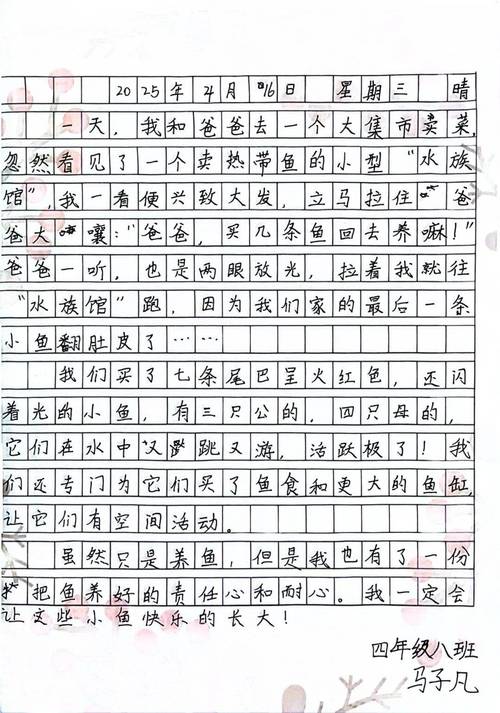 2025年4月16日 星期三 晴
一天，我和爸爸去一个大集市卖菜，
忽然看见了一个卖热带鱼的小型“水族
馆”，我一看便兴致大发，立马拉住爸
爸大嚷：“爸爸，买几条鱼回去养嘛！”
爸爸一听，也是两眼放光，拉着我就往
“水族馆”跑，因为我们家的最后一条
小鱼翻肚皮了……
我们买了七条尾巴呈火红色，还闪
着光的小鱼，有三只公的，四只母的，
它们在水中又跳又游，活跃极了！我
们还专门为它们买了鱼食和更大的鱼缸，
让它们有空间活动。
虽然只是养鱼，但是我也有了一份
把鱼养好的责任心和耐心。我一定会
让这些小鱼快乐的长大！
四年级八班
马子凡